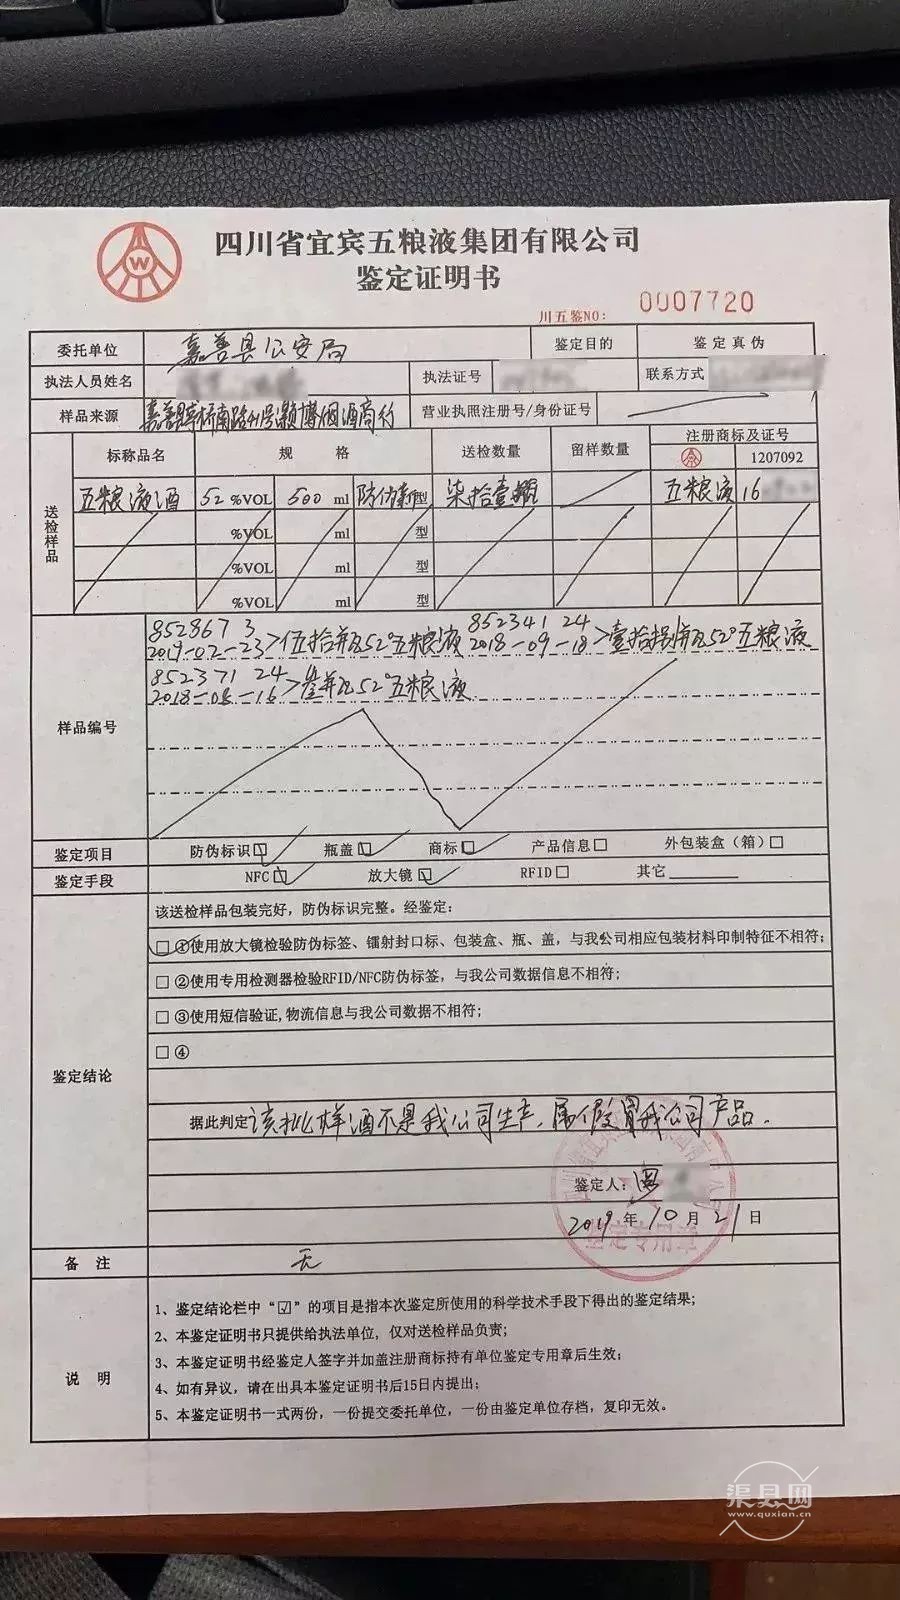 四川省宜宾五粮液集团有限公司
鉴定证明书
川五鉴NO: 0007720
委托单位 嘉善县公安局 鉴定目的 鉴定真伪
执法人员姓名 执法证号 联系方式
样品来源 嘉善 南路 号灏博烟酒商行 营业执照注册号/身份证号
送检样品 标称品名 规格 送检数量 留样数量 注册商标及证号
1207092
五粮液酒 52%VOL 500ml 防伪新型 柒拾壹瓶 五粮液 16
%VOL ml 型
%VOL ml 型
%VOL ml 型
样品编号
852867 3 852341 24
2019-02-23>伍拾瓶52°五粮液 2018-09-18>壹拾捌瓶52°五粮液
852371 24
2018-08-16>叁瓶52°五粮液
鉴定项目 防伪标识☑ 瓶盖☑ 商标☑ 产品信息□ 外包装盒（箱）□
鉴定手段 NFC☑ 放大镜☑ RFID□ 其它
鉴定结论
该送检样品包装完好，防伪标识完整。经鉴定：
☑①使用放大镜检验防伪标签、镭射封口标、包装盒、瓶、盖，与我公司相应包装材料印制特征不相符；
□②使用专用检测器检验RFID/NFC防伪标签，与我公司数据信息不相符；
□③使用短信验证,物流信息与我公司数据不相符；
□④
据此判定 该批样酒不是我公司生产，属假冒我公司产品.
鉴定人：
2019年10月21日
鉴定专用章
备注 无
说明
1、鉴定结论栏中“☑”的项目是指本次鉴定所使用的科学技术手段下得出的鉴定结果；
2、本鉴定证明书只提供给执法单位，仅对送检样品负责；
3、本鉴定证明书经鉴定人签字并加盖注册商标持有单位鉴定专用章后生效；
4、如有异议，请在出具本鉴定证明书后15日内提出；
5、本鉴定证明书一式两份，一份提交委托单位，一份由鉴定单位存档，复印无效。
渠县网
www.quxian.cn